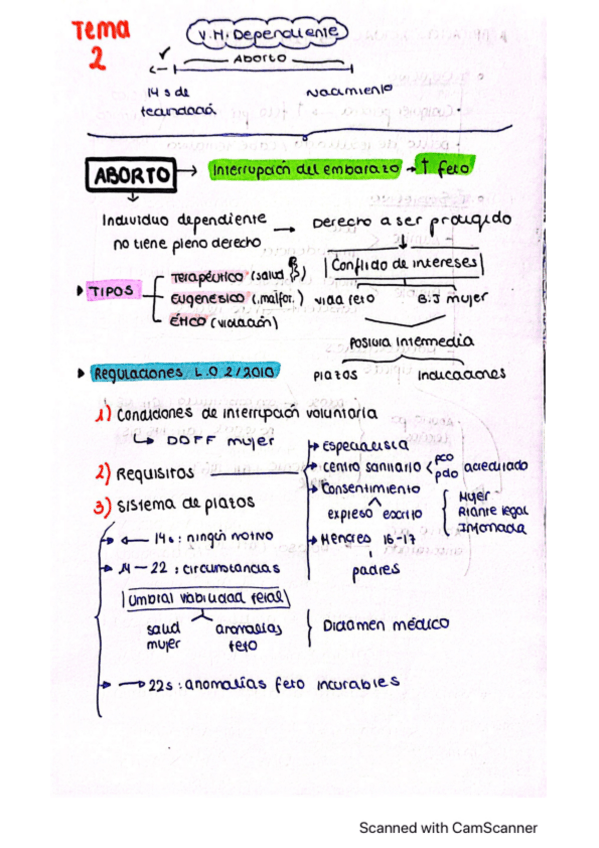 Tema 2
V.H. Dependiente
Aborto
14 s de fecundación
Nacimiento
ABORTO → Interrupción del embarazo → † feto
Individuo dependiente no tiene pleno derecho → Derecho a ser protegido
Conflicto de intereses
vida feto
B.J mujer
Postura intermedia
Plazos
Indicaciones
TIPOS
Terapéutico (salud)
Eugenésico (.malfor.)
Ético (violación)
Regulaciones L.O 2/2010
1) Condiciones de interrupción voluntaria
↳ DDFF mujer
2) Requisitos
→ Especialista
→ Centro sanitario < pco pdo acreditado
→ Consentimiento
expreso escrito
Mujer
Rtante legal
Informada
→ Menores 16-17
padres
3) Sistema de plazos
← 14s: ningún motivo
14 — 22 : circunstancias
Umbral viabilidad fetal
salud mujer
anomalías feto
Dictamen médico
→ 22s: anomalías feto incurables
Scanned with CamScanner